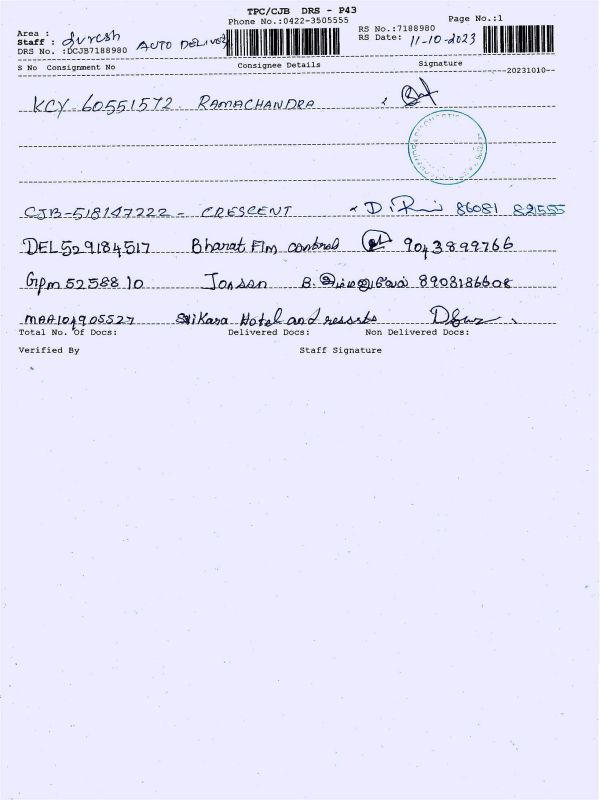 TPC/CJB DRS - P43
Phone No.:0422-3505555
Page No.:1
Area :
Staff : Suresh AUTO DELIVERY
DRS No. :DCJB7188980
RS No.:7188980
RS Date: 11-10-2023
S No Consignment No Consignee Details Signature
20231010
KCY 60551572 RAMACHANDRA
CJB-518147222 - CRESCENT 86081 82555
DEL529184517 Bharat Flm control 9043899766
Gpm 5258810 Jonson B. இம்மானுவேல் 8908186608
MAA104905527 Srikara Hotel and resorts
Total No. Of Docs: Delivered Docs: Non Delivered Docs:
Verified By Staff Signature